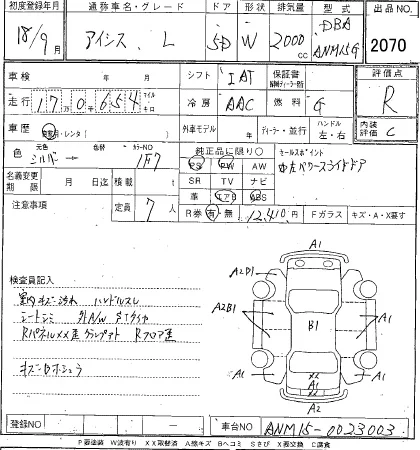 初度登録年月 通称車名・グレード ドア 形状 排気量 型式 出品NO
18/9月 アイシス. L 5D W 2000cc DBA ANM15G 2070
車検 年 月 シフト IAT 保証書 評価点
走行 17万0千654 マイル キロ 冷房 AAC 燃料 G R
車歴 自家用・レンタ( ) 外車モデル 年 ディーラー・並行 ハンドル 左・右 内装評価 C
色 シルバー 色替 カラーNO 1F7 純正品に限り○ セールスポイント
PS PW AW 両左パワースライドドア
名義変更期限 月 日迄 積載 t SR TV ナビ
注意事項 定員 7人 革 エアB ABS
R券 有・無 12,410円 Fガラス キズ・A・X要す
検査員記入
室内キズ汚れ ハンドルスレ
シートシミ 外A/W STタイヤ
RパネルXX歪 Rフロア歪
A1
A2D1
A2B1
B1
A1
A1
XX
A1
A2
登録NO 車台NO ANM15-0023003
P要塗装 W波有り XX取替済 A線キズ Bヘコミ Sさび X要交換 C腐食